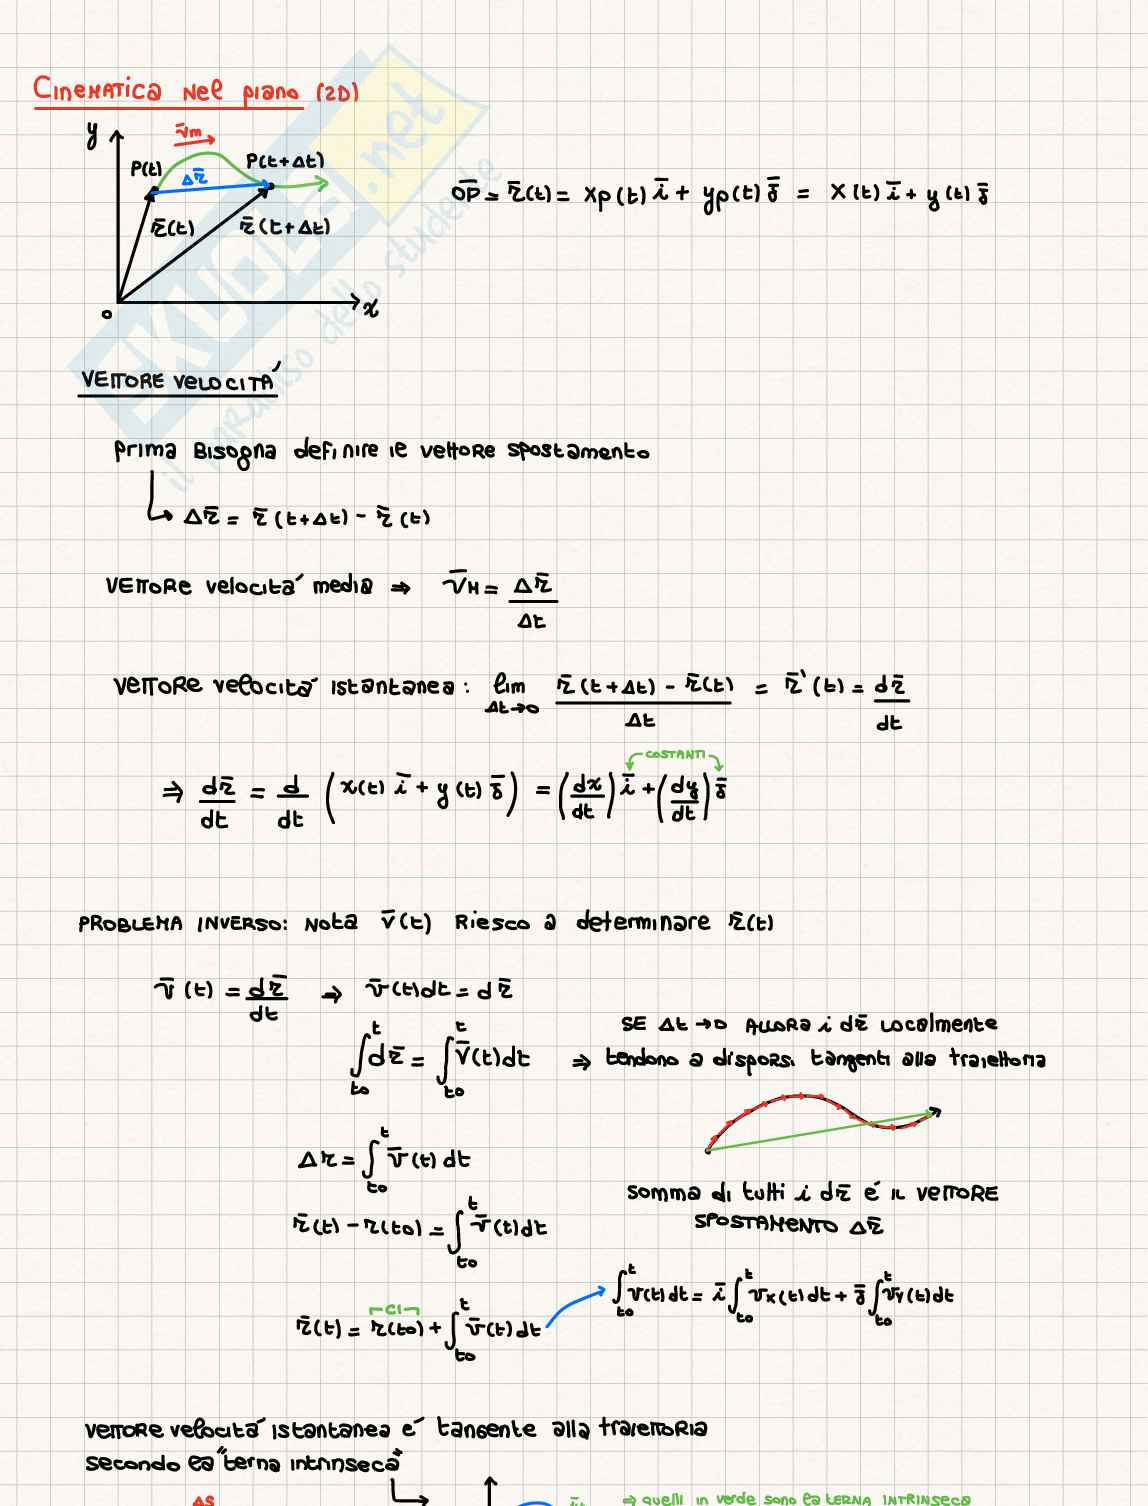 Cinematica nel piano (2D)
y
v̄m
P(t)
P(t+Δt)
Δr̄
OP̄ = r̄(t) = xp(t) ī + yp(t) j̄ = x(t) ī + y(t) j̄
r̄(t)
r̄(t+Δt)
o
x
SKUOLA.net
il paradiso dello studente
VETTORE VELOCITÀ
Prima Bisogna definire il vettore spostamento
Δr̄ = r̄(t+Δt) - r̄(t)
VETTORE velocità media ⇒ v̄M = Δr̄/Δt
VETTORE velocità istantanea: lim Δt→0 (r̄(t+Δt) - r̄(t))/Δt = r̄'(t) = dr̄/dt
COSTANTI
⇒ dr̄/dt = d/dt (x(t) ī + y(t) j̄) = (dx/dt) ī + (dy/dt) j̄
PROBLEMA INVERSO: Nota v̄(t) Riesco a determinare r̄(t)
v̄(t) = dr̄/dt → v̄(t)dt = dr̄
∫t0^t dr̄ = ∫t0^t v̄(t)dt ⇒
SE Δt→0 ALLORA i dr̄ localmente
tendono a dispors. tangenti alla traiettoria
Δr = ∫t0^t v̄(t) dt
somma di tutti i dr̄ è il VETTORE
SPOSTAMENTO Δr̄
r̄(t) - r(t0) = ∫t0^t v̄(t)dt
CI
r̄(t) = r(t0) + ∫t0^t v̄(t)dt
∫t0^t v(t)dt = ī ∫t0^t vx(t)dt + j̄ ∫t0^t vy(t)dt
VETTORE velocità istantanea è tangente alla traiettoria
secondo la "terna intrinseca"
ΔS
⇒ quelli in verde sono la TERNA INTRINSECA